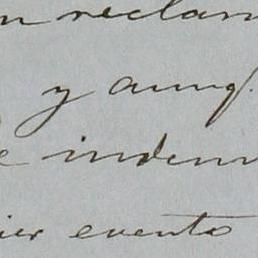 n reclam
y aunq.
e indem
ier evento